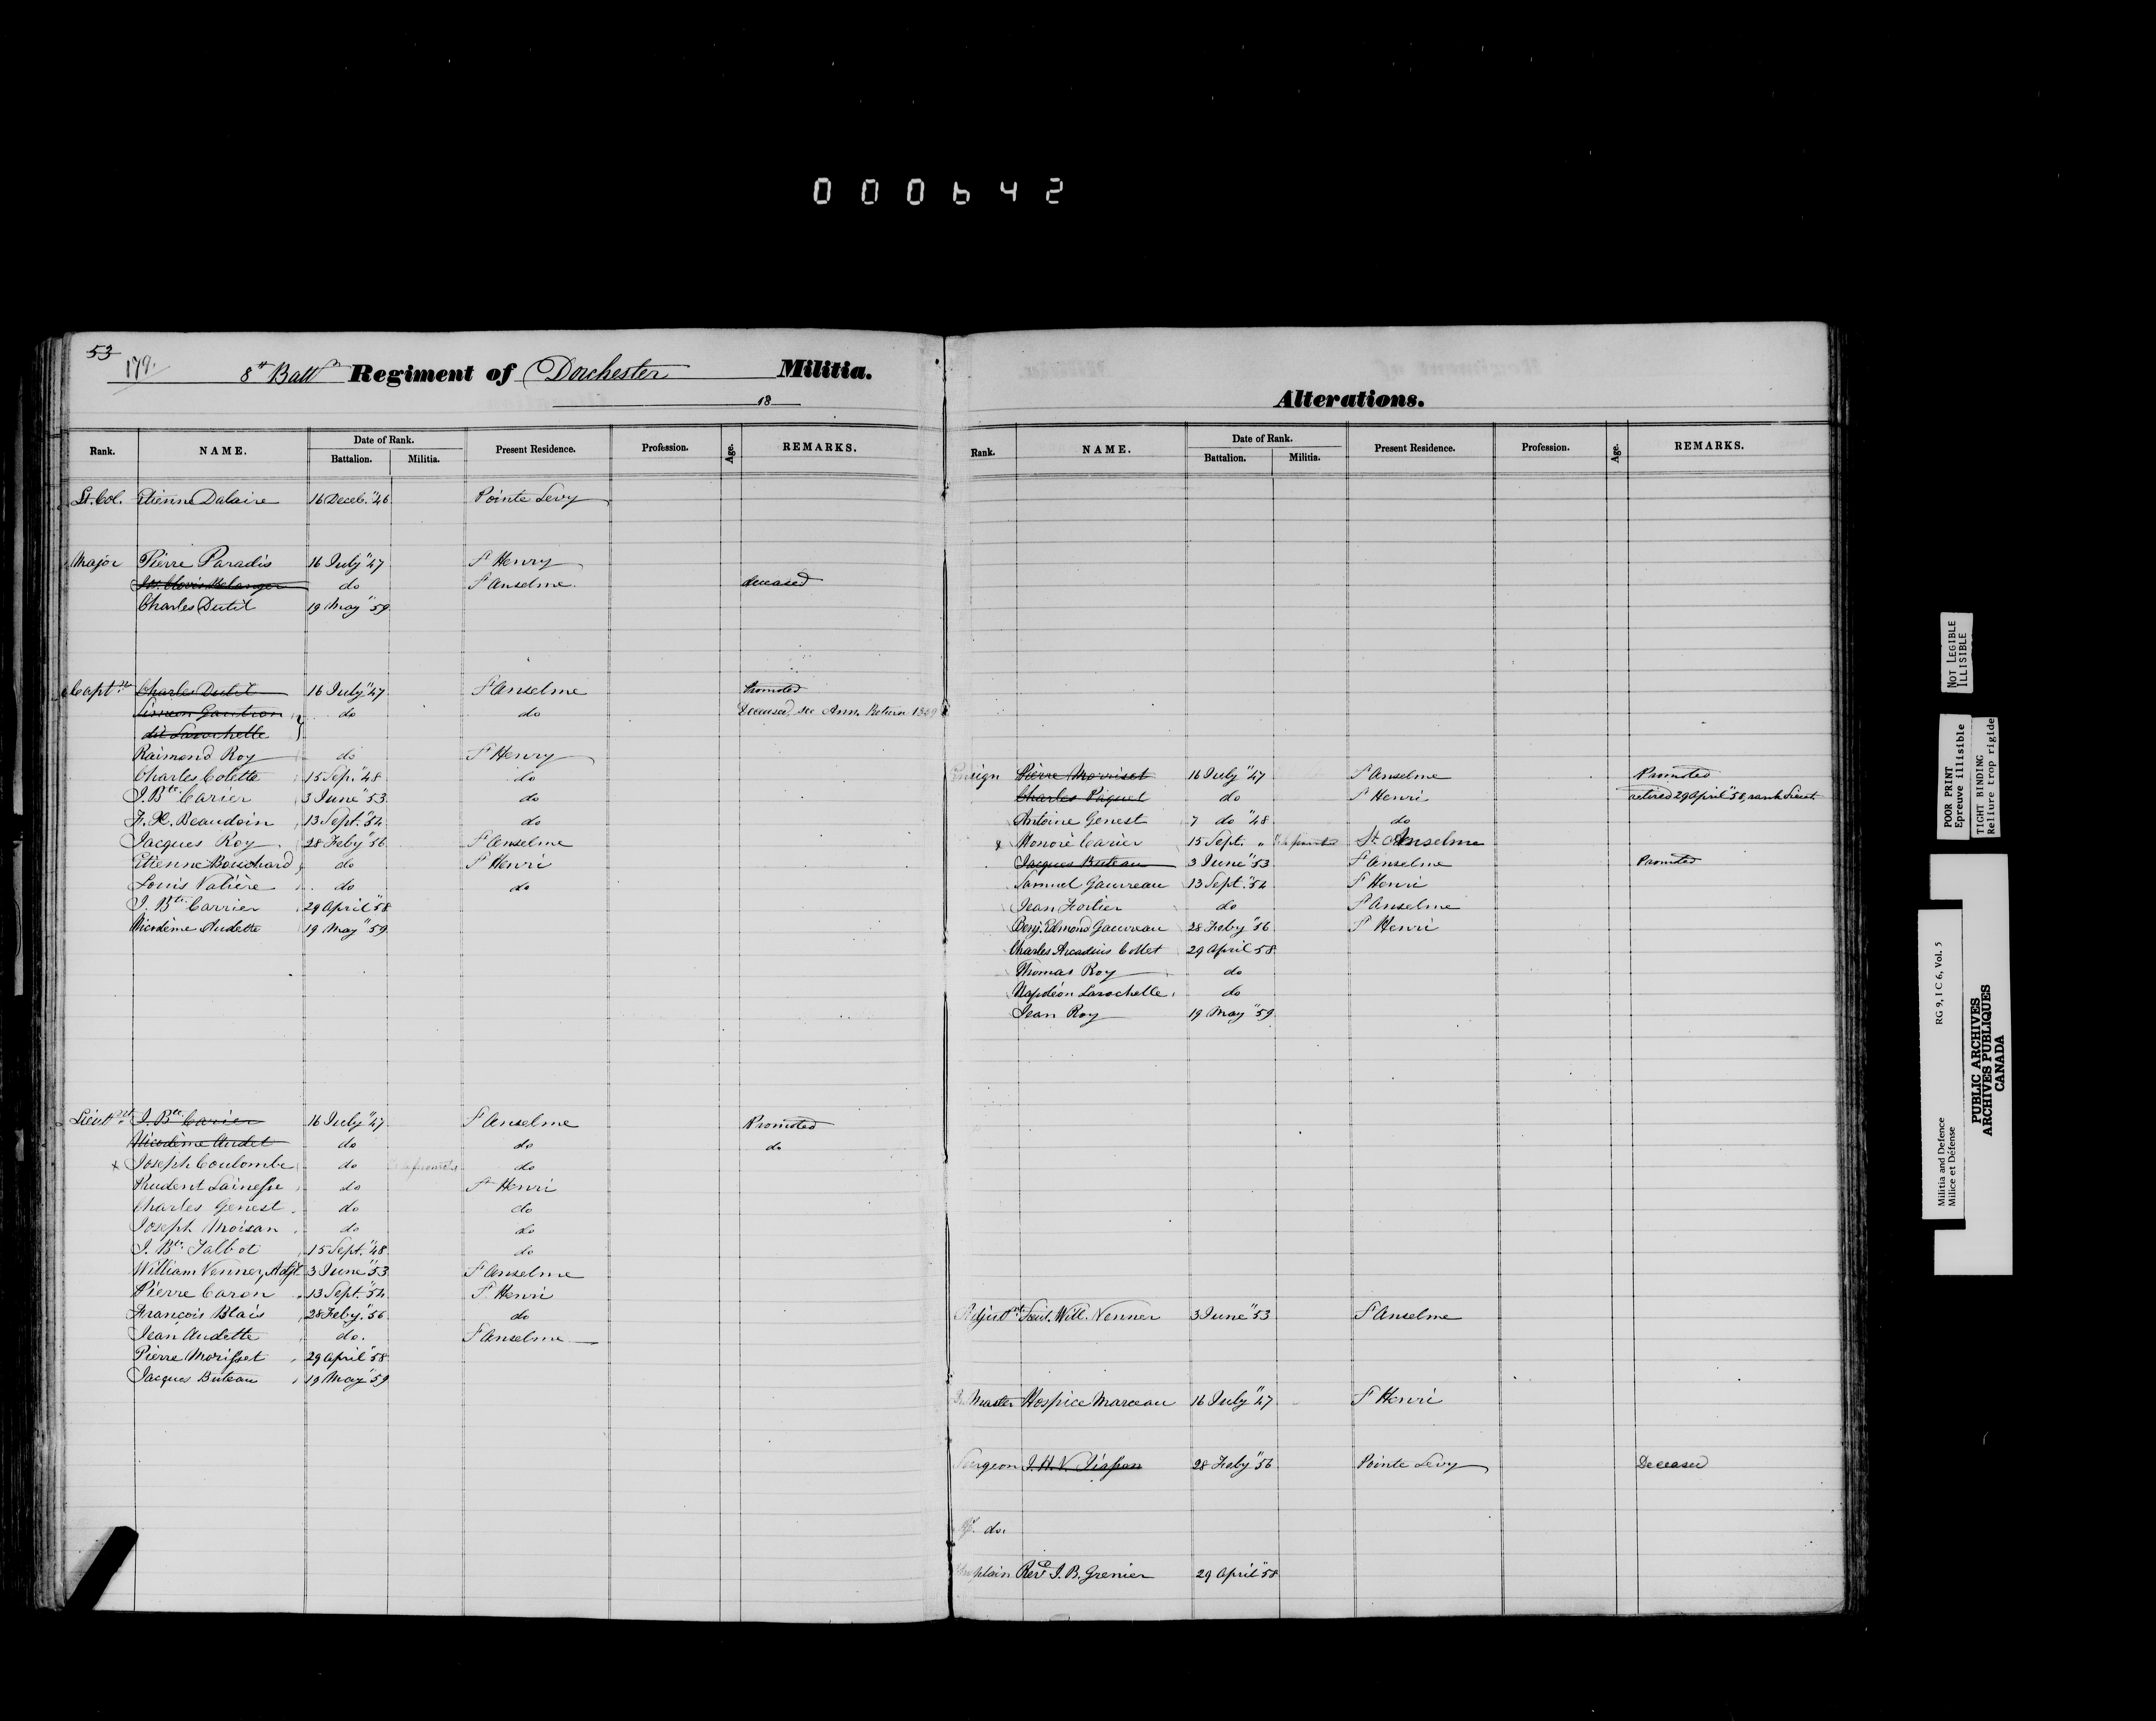 000642
53
179.
8th Battn Regiment of Dorchester Militia.
18
Rank. NAME. Date of Rank. Present Residence. Profession. Age. REMARKS.
Battalion. Militia.
Lt. Col. Etienne Dalaire 16 Deceb. "46 Pointe Levy
Major Pierre Paradis 16 July "47 St Henry
Js. Clovis Belanger do St Anselme deceased
Charles Dutil 19 May "59
Captns Charles Dutil 16 July "47 St Anselme Promoted
Simeon Gautron do do Deceased, see Ann. Return 1859
dit Larochelle
Raimond Roy do St Henry
Charles Colette 15 Sep. "48 do
J. Bte Carier 3 June "53 do
F. X. Beaudoin 13 Sept. "54 do
Jacques Roy 28 Feby "56 St Anselme
Etienne Bouchard do St Henri
Louis Valière do do
J. Bte Carrier 29 April "58
Nicodème Audette 19 May "59
Lieutnts J. Bte Carier 16 July "47 St Anselme Promoted
Nicodème Audet do do do
x Joseph Coulombe do do
Prudent Lainesse do St Henri
Charles Genest do do
Joseph Moisan do do
J. Bte Talbot 15 Sept. "48 do
William Venner, Adjt. 3 June "53 St Anselme
Pierre Caron 13 Sept. "54 St Henri
François Blais 28 Feby. "56 do
Jean Audette do. St Anselme
Pierre Morisset 29 April "58
Jacques Buteau 19 May "59
Alterations.
Rank. NAME. Date of Rank. Present Residence. Profession. Age. REMARKS.
Battalion. Militia.
Ensign Pierre Morriset 16 July "47 St Anselme Promoted
Charles Paquet do St Henri retired 29 April "58, rank Lieut.
Antoine Genest 7 do "48 do
x Honoré Carier 15 Sept. " St. Anselme
Jacques Buteau 3 June "53 St Anselme Promoted
Samuel Gauvreau 13 Sept. "54 St Henri
Jean Fortier do St Anselme
Benj. Edmond Gauvreau 28 Feby "56 St Henri
Charles Arcadius Collet 29 April "58
Thomas Roy do
Napoléon Larochelle do
Jean Roy 19 May "59
Adjutnt Lieut. Will. Venner 3 June "53 St Anselme
Qr. Master Hospice Marceau 16 July "47 St Henri
Surgeon Pointe Levy 28 Feby "56 Deceased
do.
Chaplain Revd J. B. Grenier 29 April "58
NOT LEGIBLE
ILLISIBLE
POOR PRINT
Epreuve illisible
TIGHT BINDING
Reliure trop rigide
RG 9, I C 6, Vol. 5
Militia and Defence
Milice et Défense
PUBLIC ARCHIVES
ARCHIVES PUBLIQUES
CANADA